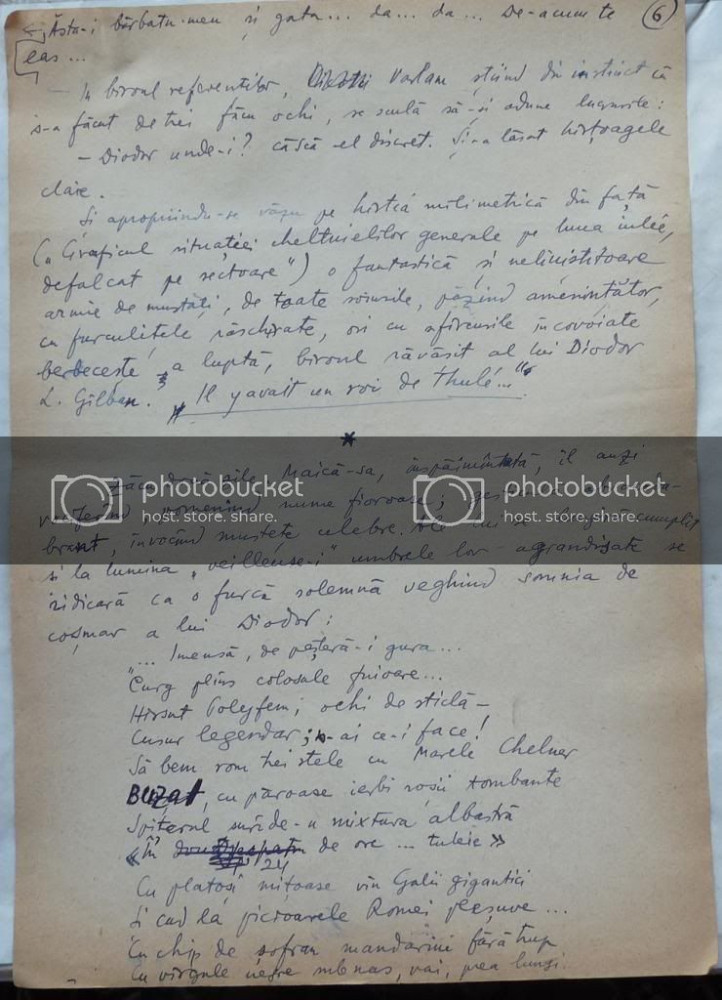 6
„Ăsta-i bărbatu-meu și gata... da... da... De-acum te
las...
În biroul referenților, Varlam știind din instinct că
s-a făcut de trei făcu ochi, se sculă să-și adune lucrurile:
– Diodor unde-i? căscă el discret. Și-a lăsat hîrțoagele
claie.
Și apropiindu-se văzu pe hîrtia milimetrică din față
(„Graficul situației cheltuielilor generale pe luna iulie,
defalcat pe sectoare") o fantastică și neliniștitoare
armie de mustăți, de toate soiurile, păzind amenințător,
cu furculițele răschirate, ori cu sfîrcurile încovoiate
berbecește a luptă, biroul răvășit al lui Diodor
L. Gilban. „Il y avait un roi de Thulé..."
*
Maică-sa, înspăimîntată, îl auzi
vociferînd pomenind nume fioroase;
invocînd mustețe celebre.
și la lumina „veilleuse-i" umbrele lor agrandisate se
ridicară ca o furcă solemnă veghind somnia de
coșmar a lui Diodor:
"... Imensă, de peșteră-i gura...
Curg plîns colosale fuioare...
Hirsut Polyfem; ochi de sticlă –
Cusur legendar; n-ai ce-i face!
Să bem rom trei stele cu Marele Chelner
Buzat, cu păroase ierbi roșii tombante
Spițerul surîde-n mixtura albastră
«În 24 de ore... tuleie»
Cu platoși mițoase vin Galii gigantici
Și cad la picioarele Romei pleșuve...
Cu chip de șofran mandarini fără trup
Cu virgule negre sub nas, vai, prea lungi.
photobucket
host. store. share.
photobucket
host. store. share.